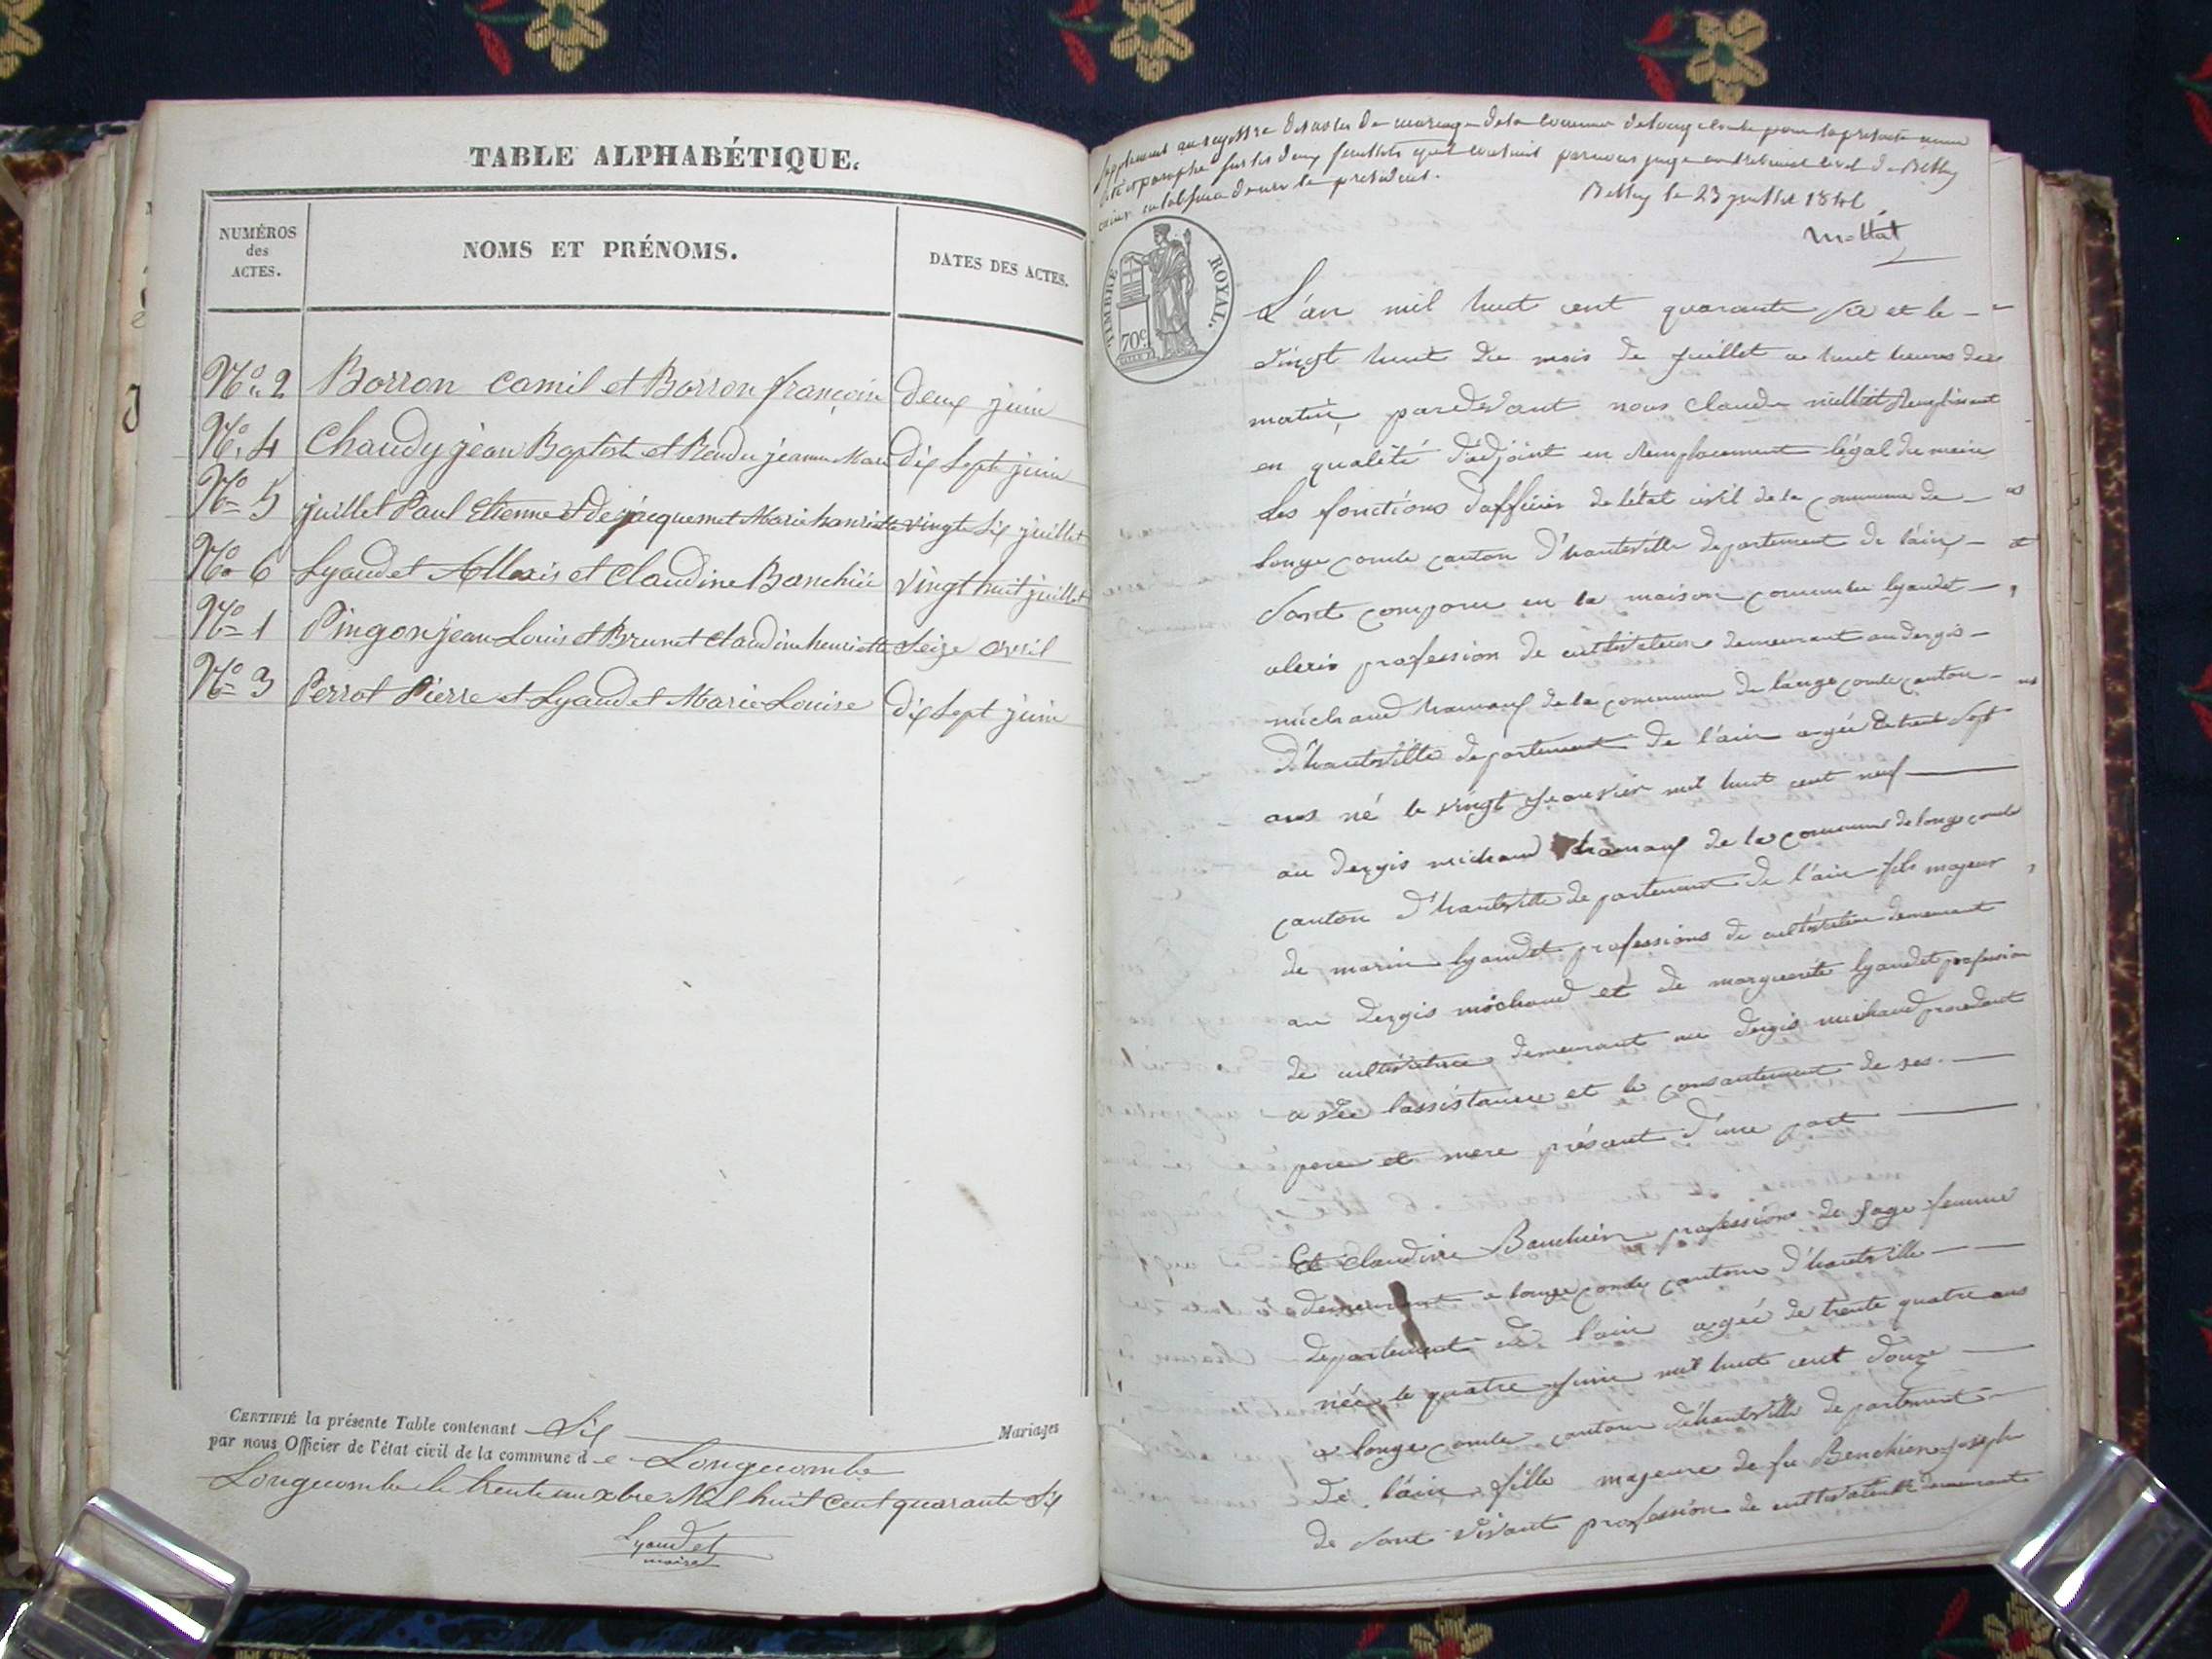 TABLE ALPHABÉTIQUE.
NUMÉROS
des
ACTES.
NOMS ET PRÉNOMS.
DATES DES ACTES.
No 2 Borron Camil et Borron françoise deux juin
No 4 Chaudy jean Baptiste et Rendu jeanne Marie dix sept juin
No 5 juillet Paul Etienne et de jacquemet Marie henriette vingt six juillet
No 6 Lyaudet Allexis et Claudine Banchiée vingt huit juillet
No 1 Pingon jean Louis et Brunet Claudine henriette Seize avril
No 3 Perrot Pierre et Lyaudet Marie Louise dix sept juin
CERTIFIÉ la présente Table contenant Six Mariages
par nous Officier de l'état civil de la commune de Longecombe
Longecombe le trente un xbre Mil huit cent quarante Six
Lyaudet
maire
Supplement au registre des actes de mariage de la commune de longecombe pour la presente année
coté et paraphé sur les deux feuillets qu'il contient par nous juge au tribunal civil de Belley
en l'absence de mr le president.
Belley le 23 juillet 1846
Mottat
TIMBRE ROYAL.
70c
L'an mil huit cent quarante six et le
vingt huit du mois de juillet a huit heures des
matin pardevant nous Claude remplissant
en qualité d'adjoint en remplacement légal du maire
les fonctions d'afficier de létat civil de la commune de
longe combe canton d'hauteville departement de láin
sont comparu en la maison commune lyaudet
alexis profession de cultivateur demeurant au dergis
michaud hamaux de la commune de longe combe canton
d'hauteville departement de l'ain agée de trente sept
ans né le vingt janvier mil huit cent neuf
au dergis michaud hamaux de la commune de longe combe
canton d'hauteville departement de l'ain fils majeur
de marin lyaudet professions de cultivateur demeurant
au dergis michaud et de marguerite lyaudet profession
de cultivatrice demeurant au dergis michaud procedant
avec lassistance et le consantement de ses
pere et mere présant d'une part
Et Claudine Banchien profession de sage femme
demeurant a longe combe canton d'hauteville
departement de l'ain agée de trente quatre ans
née le quatre juin mil huit cent douze
a longe combe canton d'hauteville departement
de l'ain fille majeure de fu Benchien joseph
de sont vivant profession de cultivateur demeurant